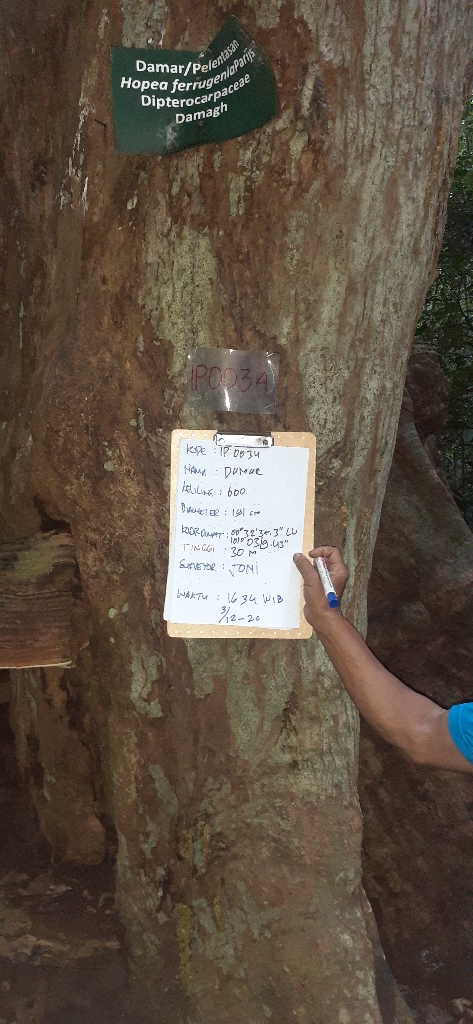 Damar/Pelentasan
Hopea ferrugenia Parijs
Dipterocarpaceae
Damagh
IP0034
KODE : IP 0034
NAMA : DAMAR
KELILING : 600
DIAMETER : 191 cm
KOORDINAT : 00°32'3 " LU
101°03'
TINGGI : 30 M
SURVEYOR : JONI
WAKTU : 16 34 WIB
3/12-20